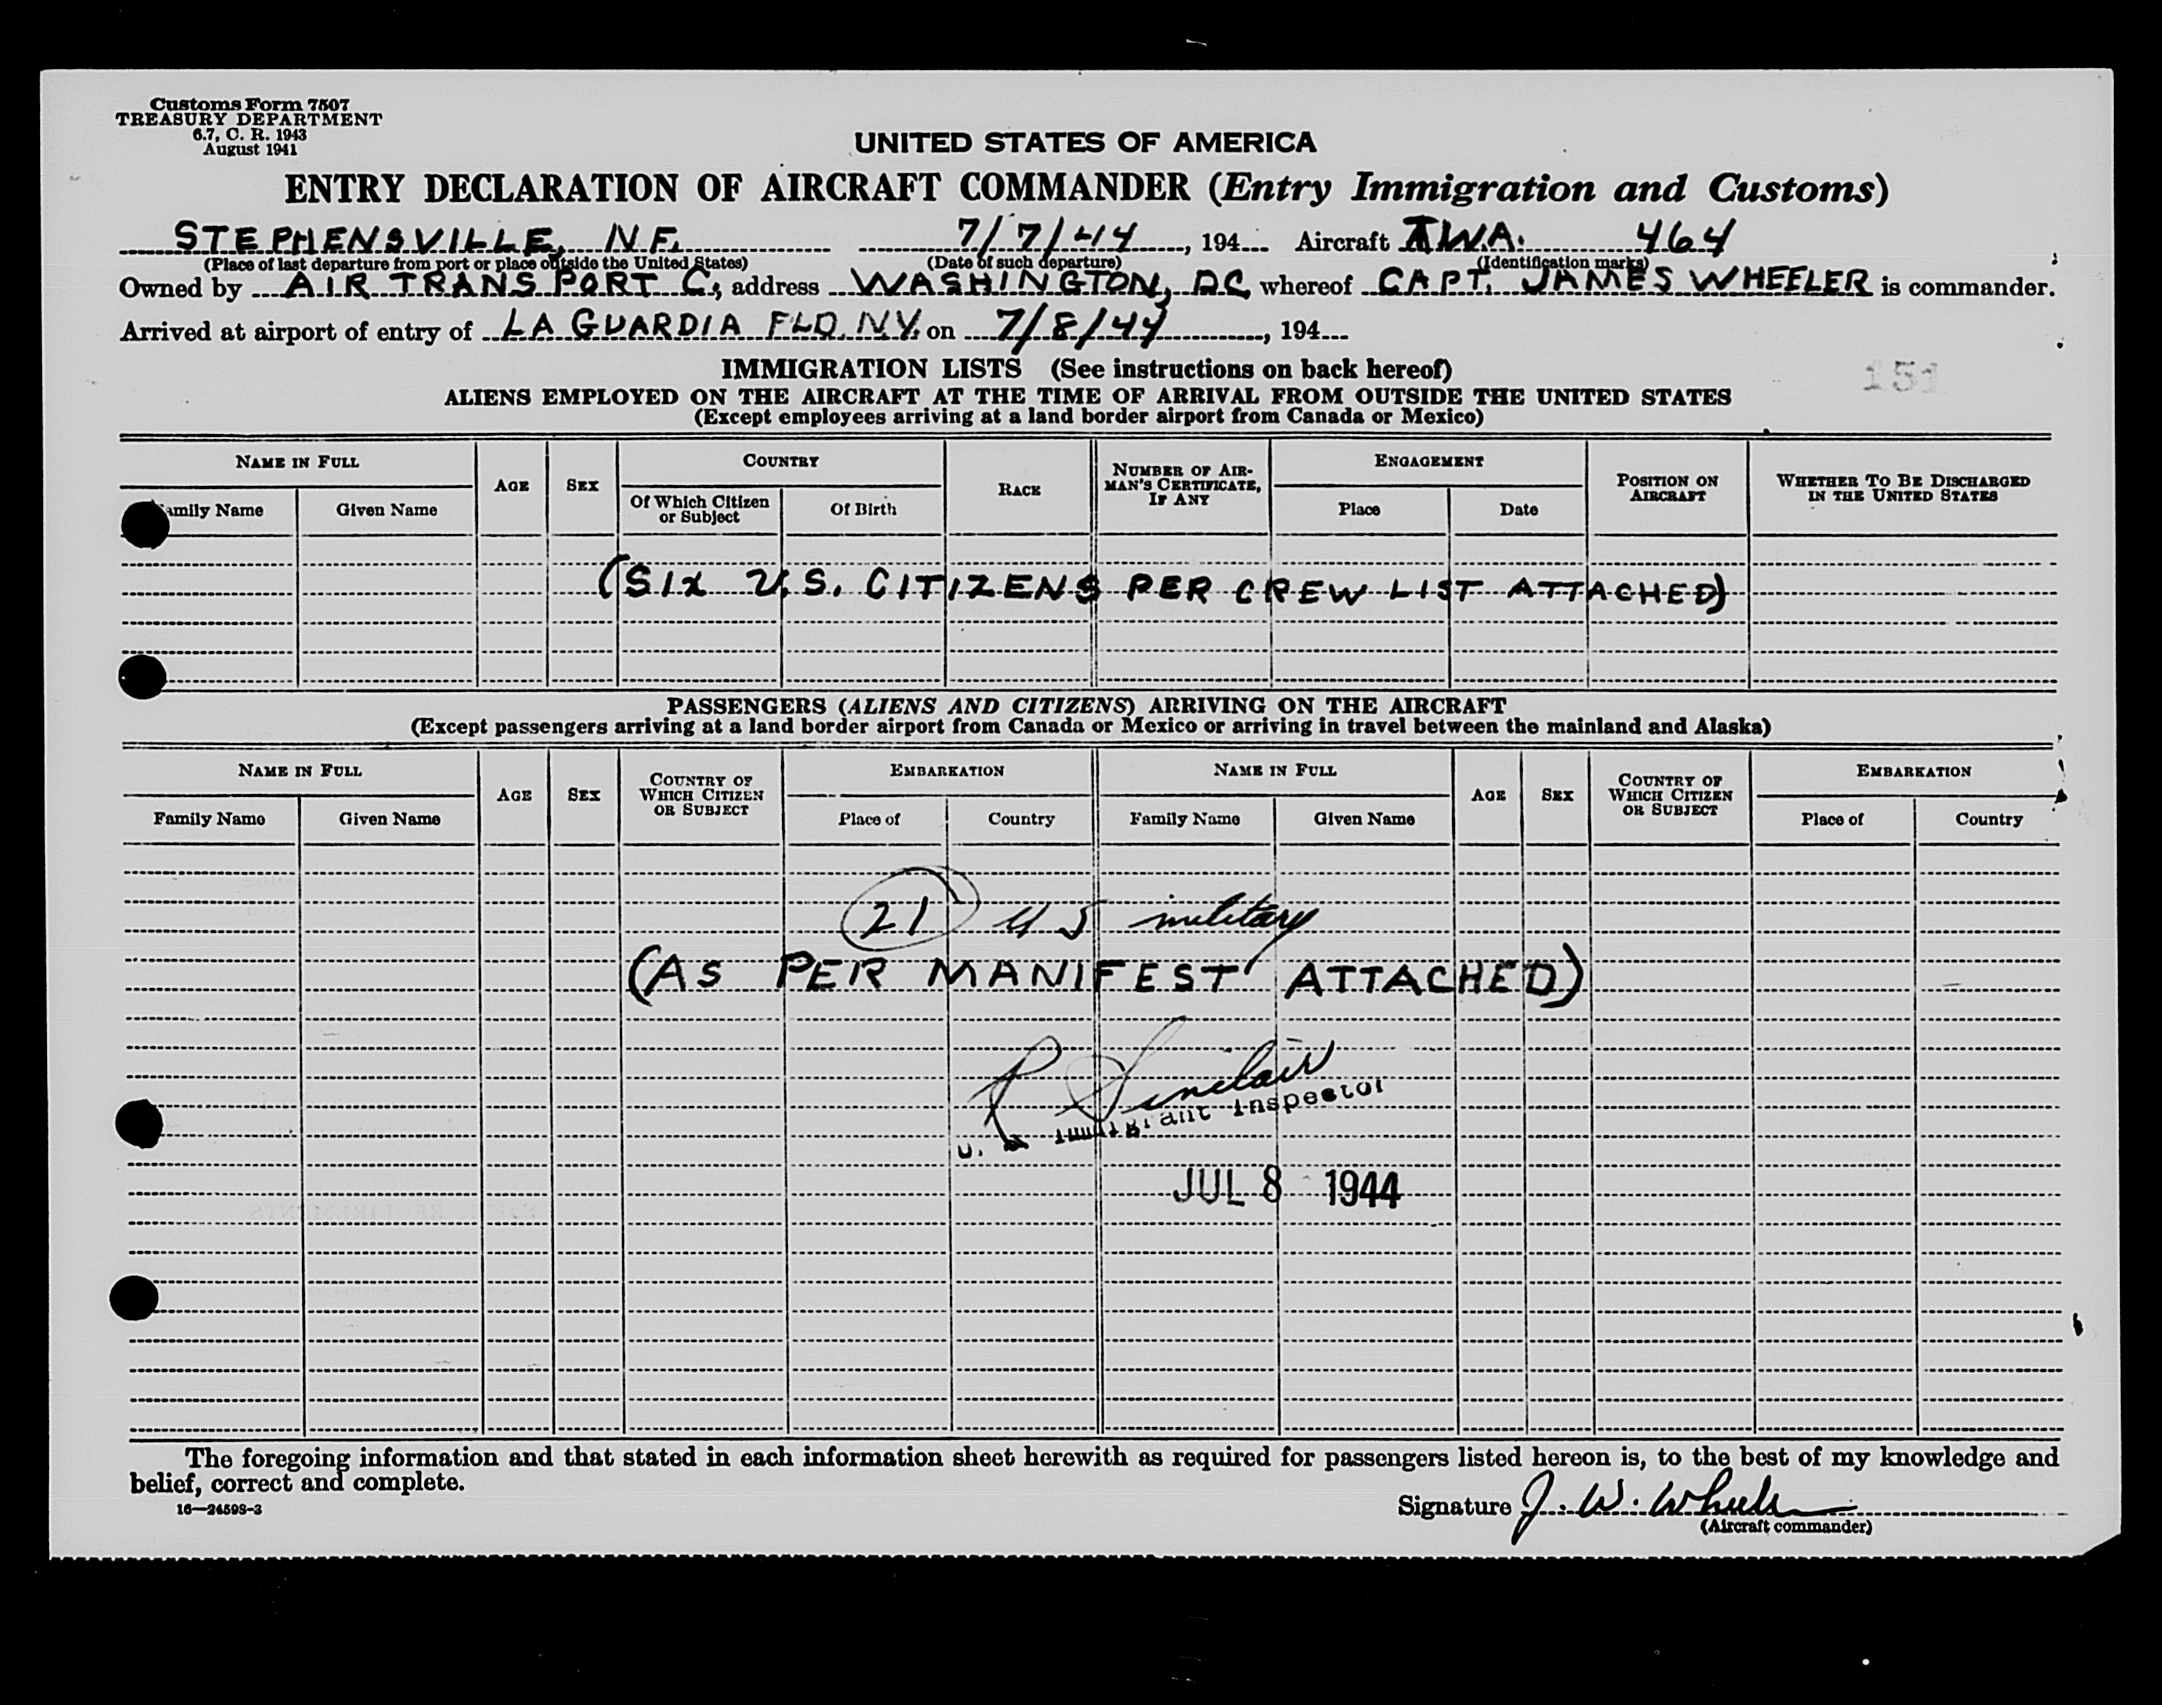 Customs Form 7507
TREASURY DEPARTMENT
6.7, C. R. 1943
August 1941
UNITED STATES OF AMERICA
ENTRY DECLARATION OF AIRCRAFT COMMANDER (Entry Immigration and Customs)
STEPHENSVILLE, N.F. 7/7/44, 194 Aircraft T.W.A. 464
(Place of last departure from port or place outside the United States) (Date of such departure) (Identification marks)
Owned by AIR TRANSPORT C, address WASHINGTON, DC whereof CAPT. JAMES WHEELER is commander.
Arrived at airport of entry of LA GUARDIA FLD. N.Y. on 7/8/44, 194
IMMIGRATION LISTS (See instructions on back hereof)
151
ALIENS EMPLOYED ON THE AIRCRAFT AT THE TIME OF ARRIVAL FROM OUTSIDE THE UNITED STATES
(Except employees arriving at a land border airport from Canada or Mexico)
NAME IN FULL AGE SEX COUNTRY RACE NUMBER OF AIRMAN'S CERTIFICATE, IF ANY ENGAGEMENT POSITION ON AIRCRAFT WHETHER TO BE DISCHARGED IN THE UNITED STATES
Family Name Given Name Of Which Citizen or Subject Of Birth Place Date
(SIX U.S. CITIZENS PER CREW LIST ATTACHED)
PASSENGERS (ALIENS AND CITIZENS) ARRIVING ON THE AIRCRAFT
(Except passengers arriving at a land border airport from Canada or Mexico or arriving in travel between the mainland and Alaska)
NAME IN FULL AGE SEX COUNTRY OF WHICH CITIZEN OR SUBJECT EMBARKATION NAME IN FULL AGE SEX COUNTRY OF WHICH CITIZEN OR SUBJECT EMBARKATION
Family Name Given Name Place of Country Family Name Given Name Place of Country
21 U S military
(AS PER MANIFEST ATTACHED)
R Sinclair
U. S. Immigrant Inspector
JUL 8 1944
The foregoing information and that stated in each information sheet herewith as required for passengers listed hereon is, to the best of my knowledge and
belief, correct and complete.
16—24598-3
Signature J. W. Wheeler
(Aircraft commander)